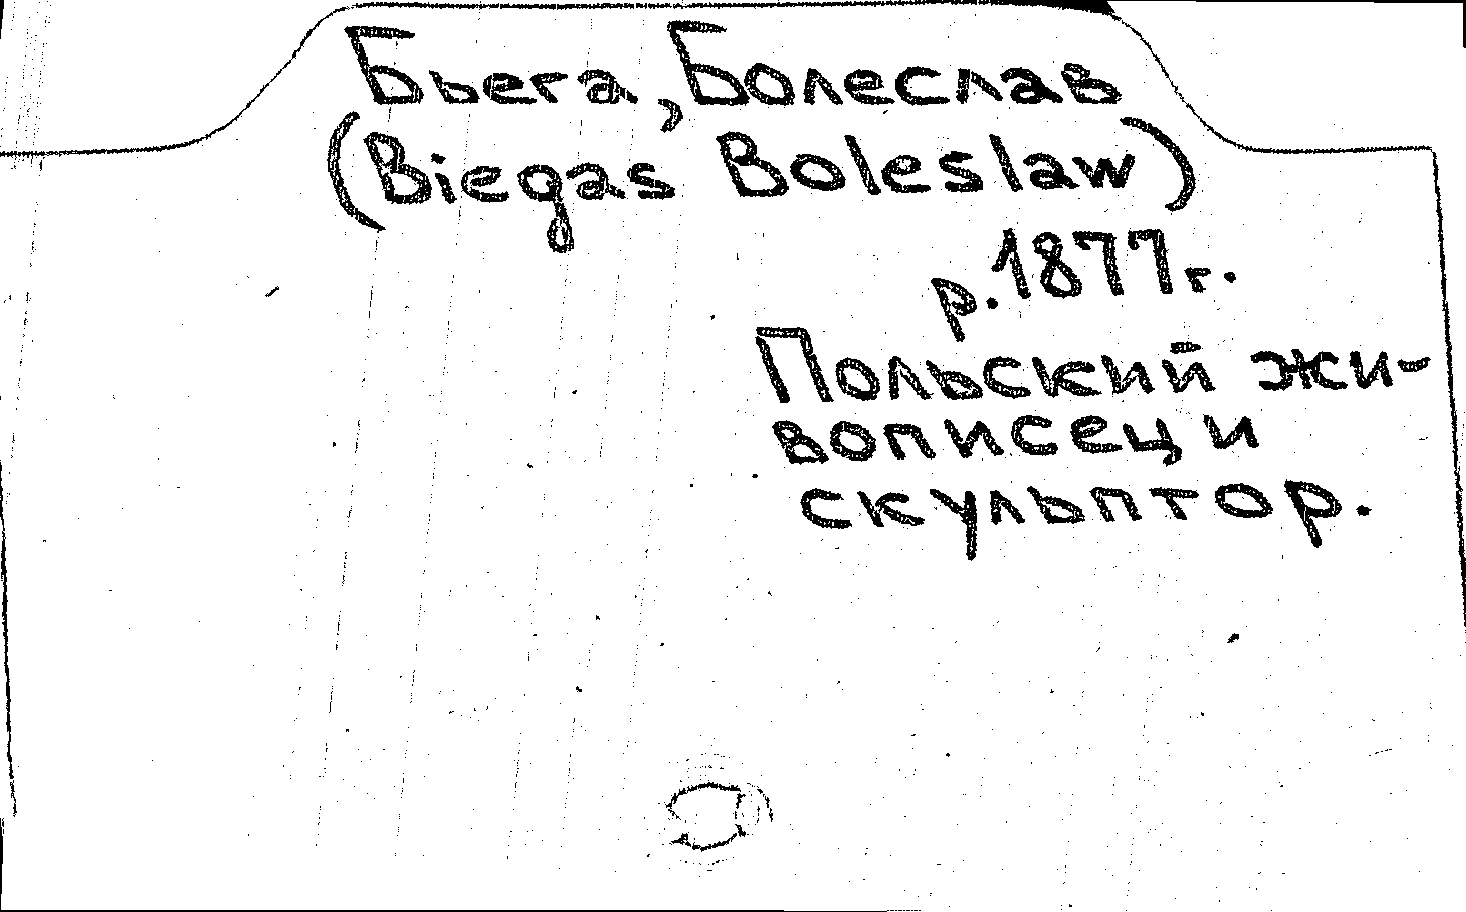 Бьега, Болеслав
(Biegas Boleslaw)
р. 1877 г.
Польский жи-
вописец и
скульптор.